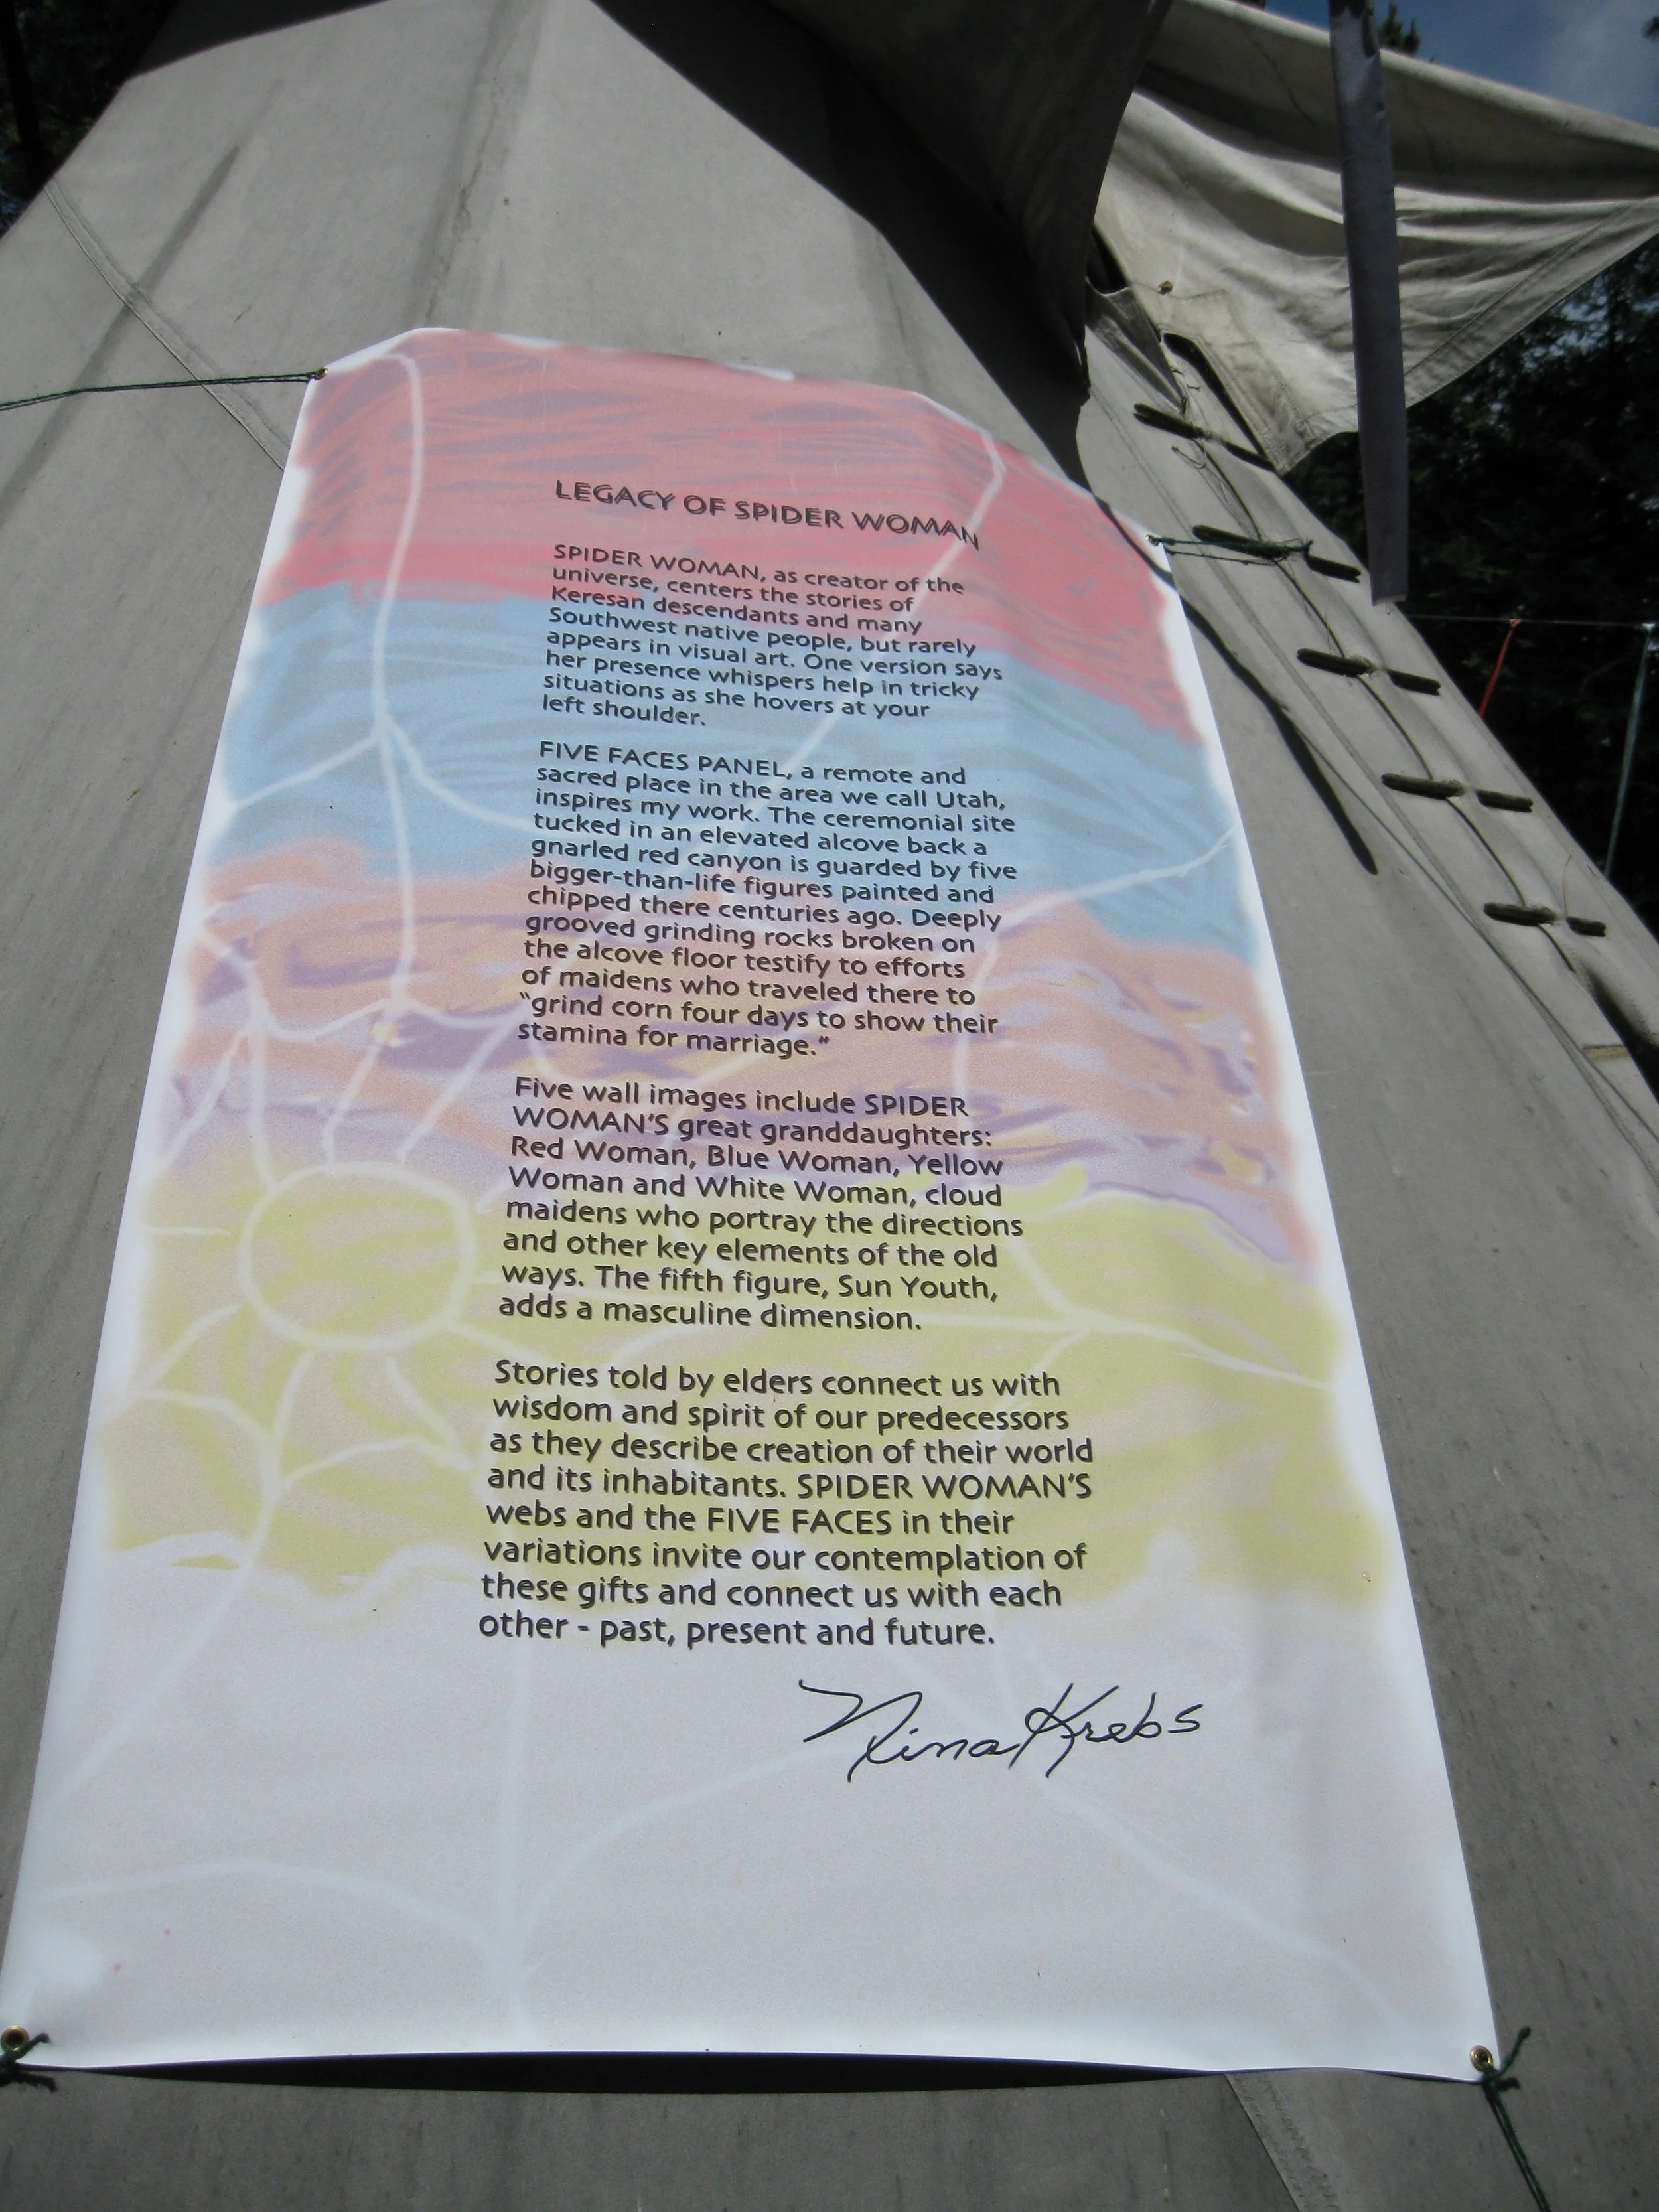 LEGACY OF SPIDER WOMAN
SPIDER WOMAN, as creator of the
universe, centers the stories of
Keresan descendants and many
Southwest native people, but rarely
appears in visual art. One version says
her presence whispers help in tricky
situations as she hovers at your
left shoulder.
FIVE FACES PANEL, a remote and
sacred place in the area we call Utah,
inspires my work. The ceremonial site
tucked in an elevated alcove back a
gnarled red canyon is guarded by five
bigger-than-life figures painted and
chipped there centuries ago. Deeply
grooved grinding rocks broken on
the alcove floor testify to efforts
of maidens who traveled there to
"grind corn four days to show their
stamina for marriage."
Five wall images include SPIDER
WOMAN'S great granddaughters:
Red Woman, Blue Woman, Yellow
Woman and White Woman, cloud
maidens who portray the directions
and other key elements of the old
ways. The fifth figure, Sun Youth,
adds a masculine dimension.
Stories told by elders connect us with
wisdom and spirit of our predecessors
as they describe creation of their world
and its inhabitants. SPIDER WOMAN'S
webs and the FIVE FACES in their
variations invite our contemplation of
these gifts and connect us with each
other - past, present and future.
Nina Krebs